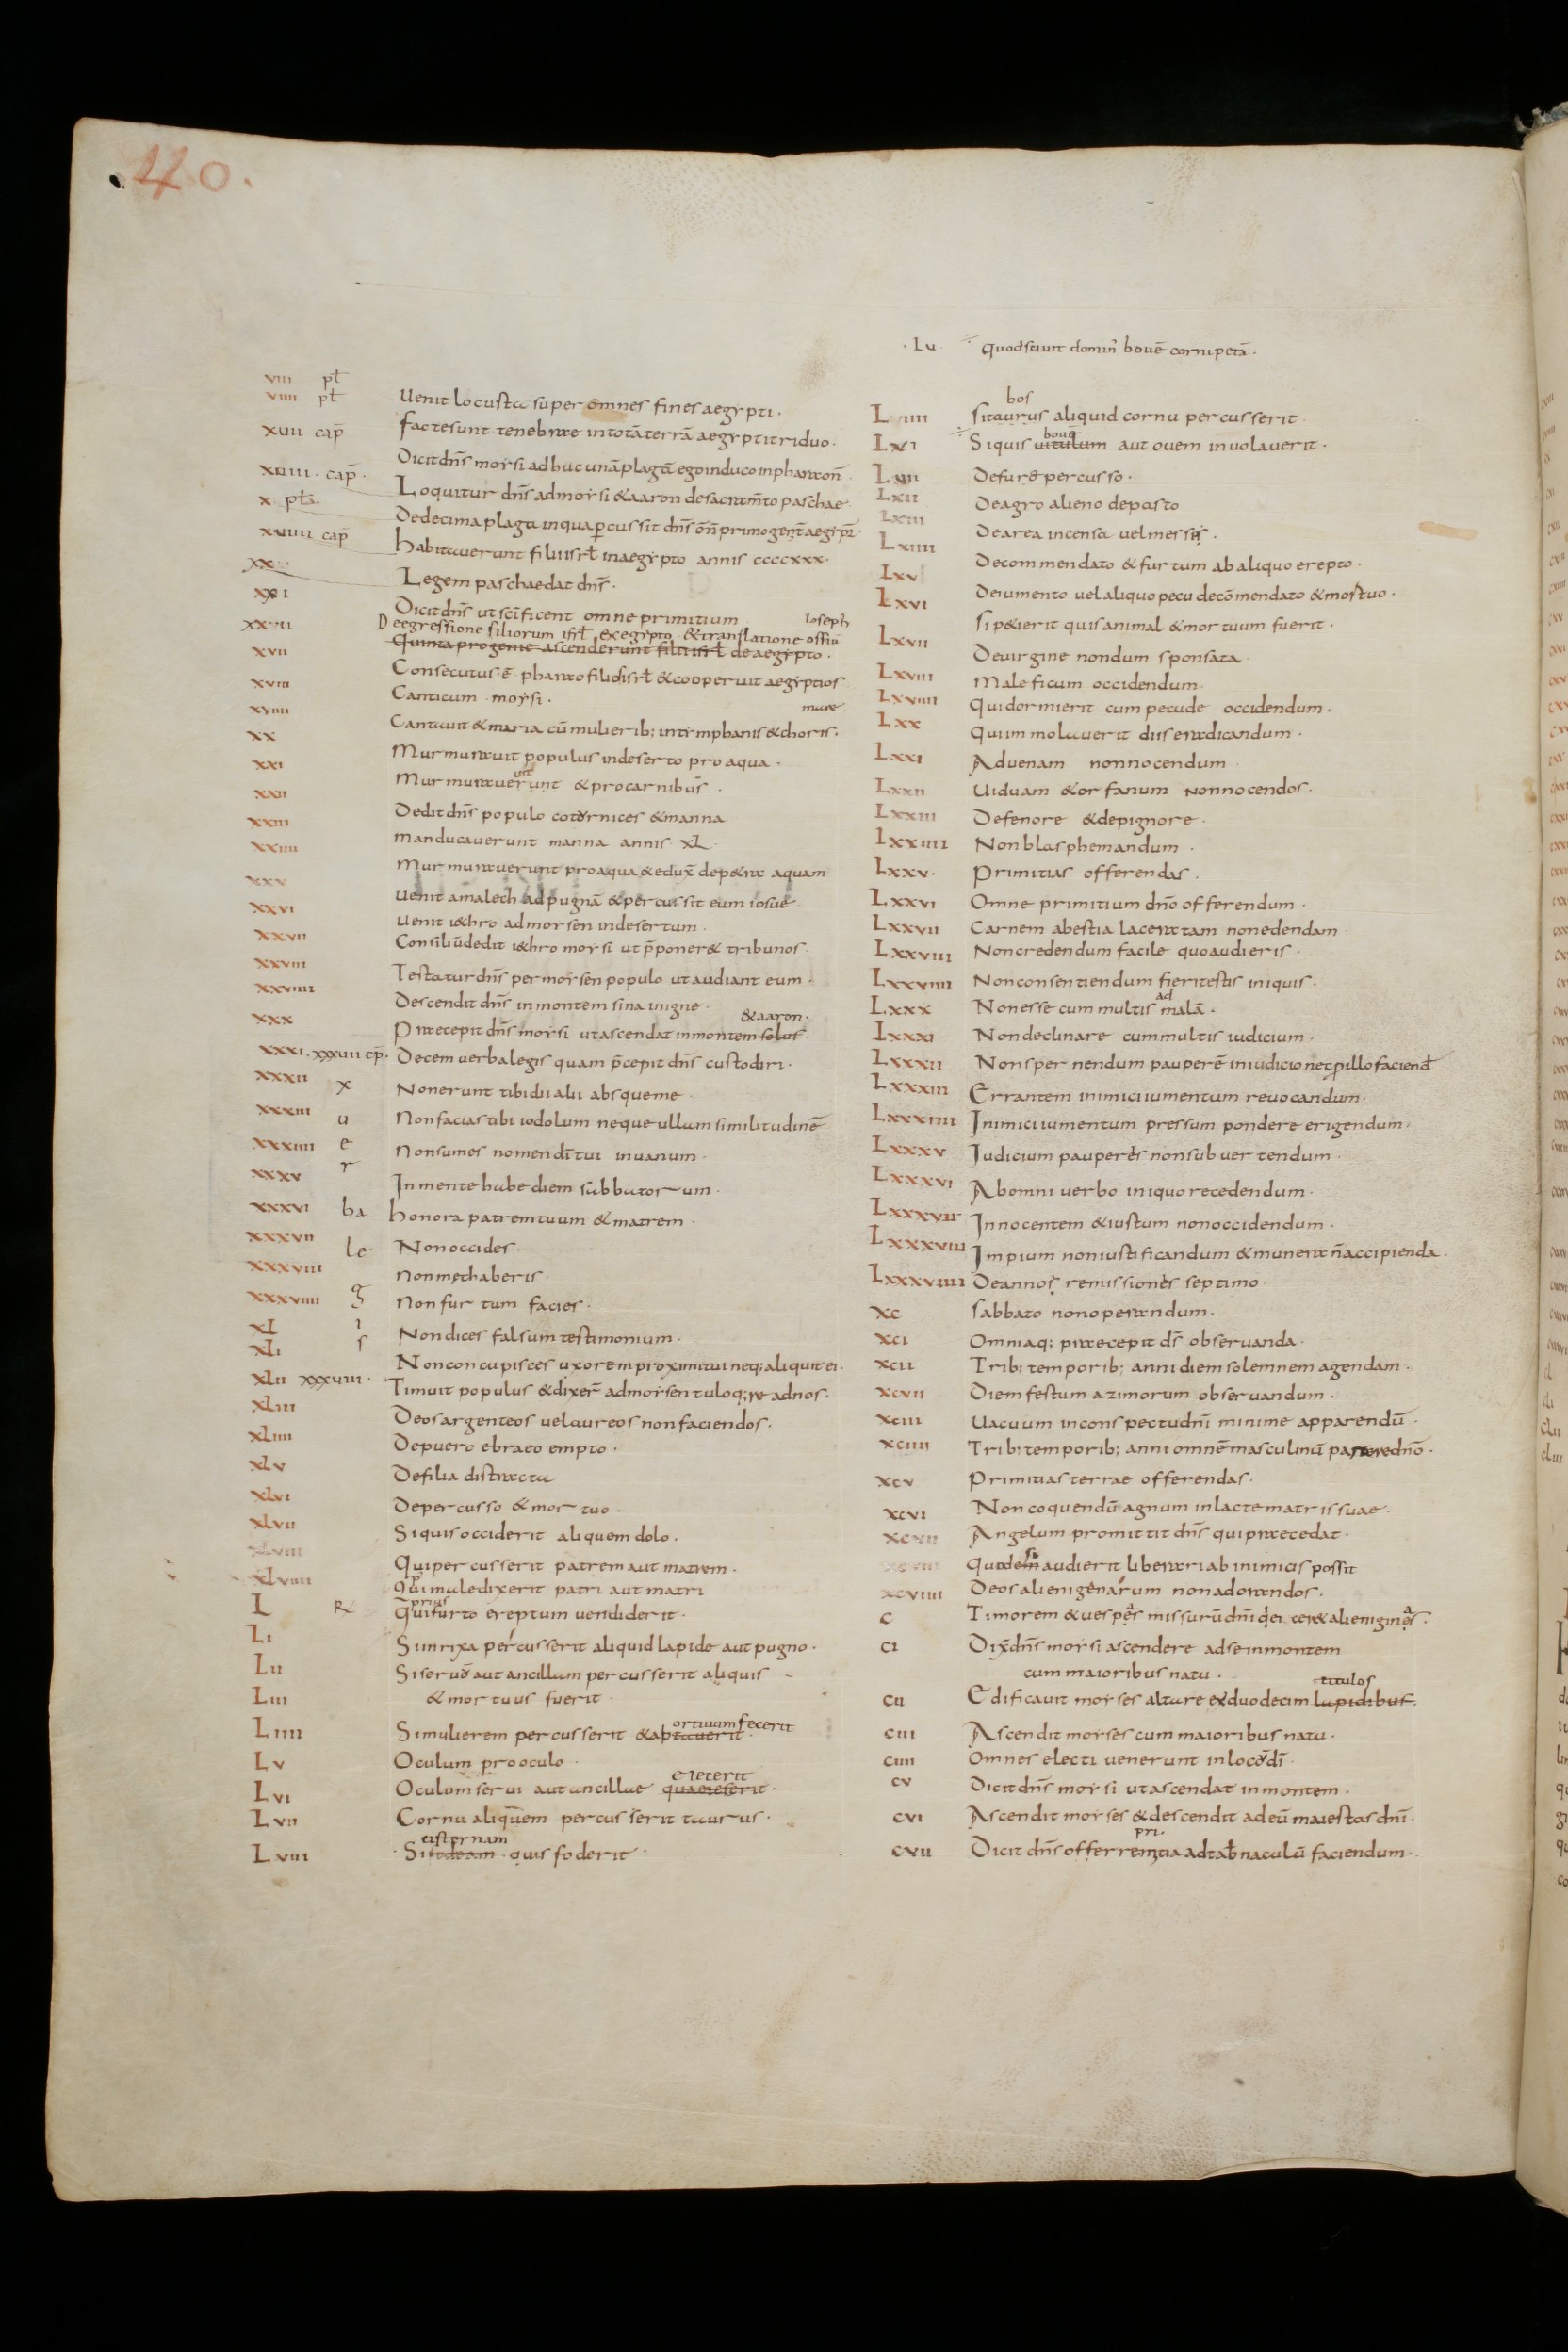 .40.
viii pł
viiii pł Uenit locusta super omnes fines aegypti.
xuii cap̄ factesunt tenebrae intotā terrā aegypti triduo.
Dicit dn̄s moysi adhuc unā plagā ego induco in pharaon̄
xuiii. cap̄. Loquitur dn̄s ad moysi & aaron de sacram̄to paschae
x płā. De decima plaga in qua ꝑcussit dn̄s
xuiiii cap̄ habitauerunt filii isrł in aegypto annis ccccxxx.
Legem paschae dat dn̄s.
Dicit dn̄s ut sc̄ificent omne primitium
Ioseph
Deegressione filiorum isrł exegypto & translatione ossiū
xvii Quinta progenie ascenderunt filii isrł de aegypto.
Consecutus ē pharao filiis isrł & cooperuit aegyptios
xviii Canticum moysi. mare.
xviiii Cantauit & maria cū mulierib; in tymphanis & choris.
xx Murmurauit populus in deserto pro aqua.
xxi Murmurauerunt & pro carnibus.
uit
xxii Dedit dn̄s populo coturnices & manna
xxiii manducauerunt manna annis xL.
xxiiii Murmurauerunt pro aqua & edux̄ de p&ra aquam
xxv uenit amalech ad pugnā & percussit eum iosue
xxvi uenit i&hro ad moysen in desertum.
xxvii Consiliū dedit i&hro moysi ut p̄poner& tribunos.
xxviii Testatur dn̄s per moysen populo ut audiant eum.
xxviiii Descendit dn̄s in montem sina in igne.
& aaron.
xxx Praecepit dn̄s moysi ut ascendat in montem solus.
xxxi. xxxviii cp̄. Decem uerba legis quam p̄cepit dn̄s custodiri.
xxxii x Non erunt tibi dii alii absque me.
xxxiii u Non facias tibi iodolum neque ullam similitudinē
xxxiiii e Non sumes nomen dī tui in uanum.
xxxv r In mente habe diem sabbatorum.
xxxvi ba honora patrem tuum & matrem.
xxxvii le Non occides.
xxxviii non mechaberis.
xxxviiii g Non furtum facies.
xL i Non dices falsum testimonium.
xLi s Non concupisces uxorem proximi tui neq; aliquit ei.
xLii xxxviiii. Timuit populus & dixer̄ ad moysen tu loq;re ad nos.
xLiii Deos argenteos uel aureos non faciendos.
xLiiii De puero ebraeo empto.
xLv De filia distracta
xLvi De percusso & mortuo.
xLvii Si quis occiderit aliquem dolo.
xLviii Qui percusserit patrem aut matrem.
xLviiii Qui maledixerit patri aut matri
prius
L R Qui furto ereptum uendiderit.
Li Si in rixa percusserit aliquid lapide aut pugno.
Lii Si seruū aut ancillam percusserit aliquis
Liii & mortuus fuerit.
ortiuum fecerit
Liiii Si mulierem percusserit & abortauerit.
Lv Oculum pro oculo.
eiecerit
Lvi Oculum serui aut ancillae quaeieserit.
Lvii Cornu aliquem percusserit taurus.
cisternam
Lviii Si quis foderit.
.Lu quod sciuit domin̄ bouē cornipetā.
bos
Lviiii Si taurus aliquid cornu percusserit.
bouē
Lxi Si quis uitulum aut ouem inuolauerit.
De fure percusso.
Lxii De agro alieno depasto
Lxiii De area incensa uel messis.
Lxiiii De commendato & furtum ab aliquo erepto.
Lxv De iumento uel aliquo pecu decōmendato & mostuo.
Lxvi Si p&ierit quis animal & mortuum fuerit.
Lxvii De uirgine nondum sponsata.
Lxviii Maleficum occidendum
Lxviiii Qui dormierit cum pecude occidendum.
Lxx Qui immolauerit diis eradicandum.
Lxxi Aduenam non nocendum
Lxxii Uiduam & orfanum non nocendos.
Lxxiii De fenore & de pignore.
Lxxiiii Non blasphemandum.
Lxxv. Primitias offerendas.
Lxxvi Omne primitium dn̄o offerendum.
Lxxvii Carnem a bestia laceratam non edendam
Lxxviii Non credendum facile quo audieris.
Lxxviiii Non consentiendum fieri testis iniquis.
ad
Lxxx Non esse cum multis malā.
Lxxxi Non declinare cum multis iudicium.
Lxxxii Non spernendum pauperē in iudicio nec ꝑ illo faciend̄
Lxxxiii Errantem inimici iumentum reuocandum.
Lxxxiiii Inimici iumentum pressum pondere erigendum.
Lxxxv Iudicium pauperis non subuertendum.
Lxxxvi Ab omni uerbo iniquo recedendum.
Lxxxvii Innocentem & iustum non occidendum.
Lxxxviii Impium non iustificandum & munera n̄ accipienda.
Lxxxviiii De annos remissiones septimo
xc sabbato non operandum.
xci Omniaq; praecepit ds̄ obseruanda.
xcii Trib; temporib; anni diem solemnem agendam.
xcvii Diem festum azimorum obseruandum.
xciii Uacuum in conspectu dn̄i minime apparendū.
xciiii Trib; temporib; anni omnē masculinū parere dn̄o.
xcv Primitias terrae offerendas.
xcvi Non coquendū agnum in lacte matris suae.
xcvii Angelum promittit dn̄s qui praecedat.
si
Quodem audierit liberari ab inimicis possit
xcviiii Deos alienigenarum non adorandos.
c Timorem & uespes missurū dn̄i
ci Dix̄ dn̄s moysi ascendere ad se in montem
cum maioribus natu.
titulos
cii Edificauit moyses altare & duodecim lapidibus.
ciii Ascendit moyses cum maioribus natu.
ciiii Omnes electi uenerunt in loco dī.
cv Dicit dn̄s moysi ut ascendat in montem.
cvi Ascendit moyses & descendit ad eū maiestas dn̄i.
pri.
cvii Dicit dn̄s offerrentia ad tab̄naculū faciendum.